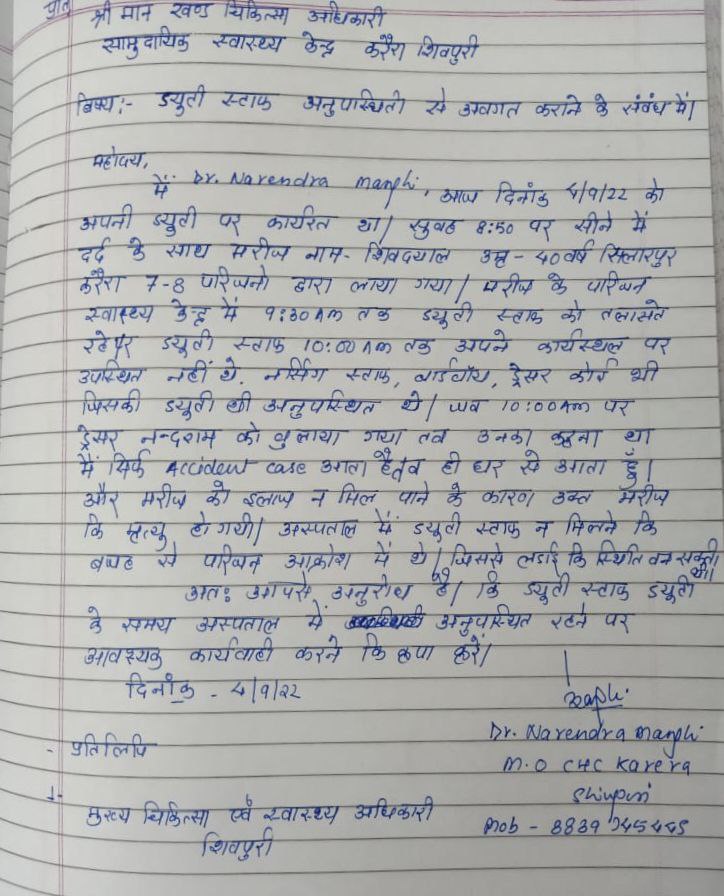 प्रति
श्री मान खण्ड चिकित्सा अधिकारी
सामुदायिक स्वास्थ्य केन्द्र करैरा शिवपुरी
विषय:- ड्युटी स्टाफ अनुपास्थिती से अवगत कराने के संबंध में।
महोदय,
में Dr. Narendra Manjhi, आज दिनांक 4/9/22 को
अपनी ड्युटी पर कार्यरत था। सुबह 8:50 पर सीने में
दर्द के साथ मरीज नाम- शिवदयाल उम्र - 40 वर्ष सिलारपुर
करैरा 7-8 परिजनो द्वारा लाया गया। मरीज के परिजन
स्वास्थ्य केन्द्र में 9:30 AM तक ड्युटी स्ताफ को तलासते
रहे पर ड्युटी स्ताफ 10:00 AM तक अपने कार्यस्थल पर
उपस्थित नहीं थे. नर्सिग स्ताफ, वार्डवॉय, ड्रेसर कोई भी
जिसकी ड्युटी थी अनुपस्थित थे। जब 10:00 AM पर
ड्रेसर नन्दराम को बुलाया गया तब उनका कहना था
मैं सिर्फ Accident case आता है तब ही घर से आता हूँ।
और मरीज को इलाज न मिल पाने के कारण उक्त मरीज
कि मृत्यु हो गयी। अस्पताल में ड्युटी स्ताफ न मिलने कि
बजह से परिजन आक्रोश में थे। जिससे लडाई कि स्थिति बन सकती थी।
अतः आपसे अनुरोध है। कि ड्युटी स्ताफ ड्युटी
के समय अस्पताल में अनुपस्थित रहने पर
आवश्यक कार्यवाही करने कि कृपा करें।
दिनाँक - 4/9/22
Dr. Narendra Manjhi
- प्रतिलिपि
M.O CHC Karera
1-
Shivpuri
मुख्य चिकित्सा एवं स्वास्थ्य अधिकारी
Mob -
शिवपुरी